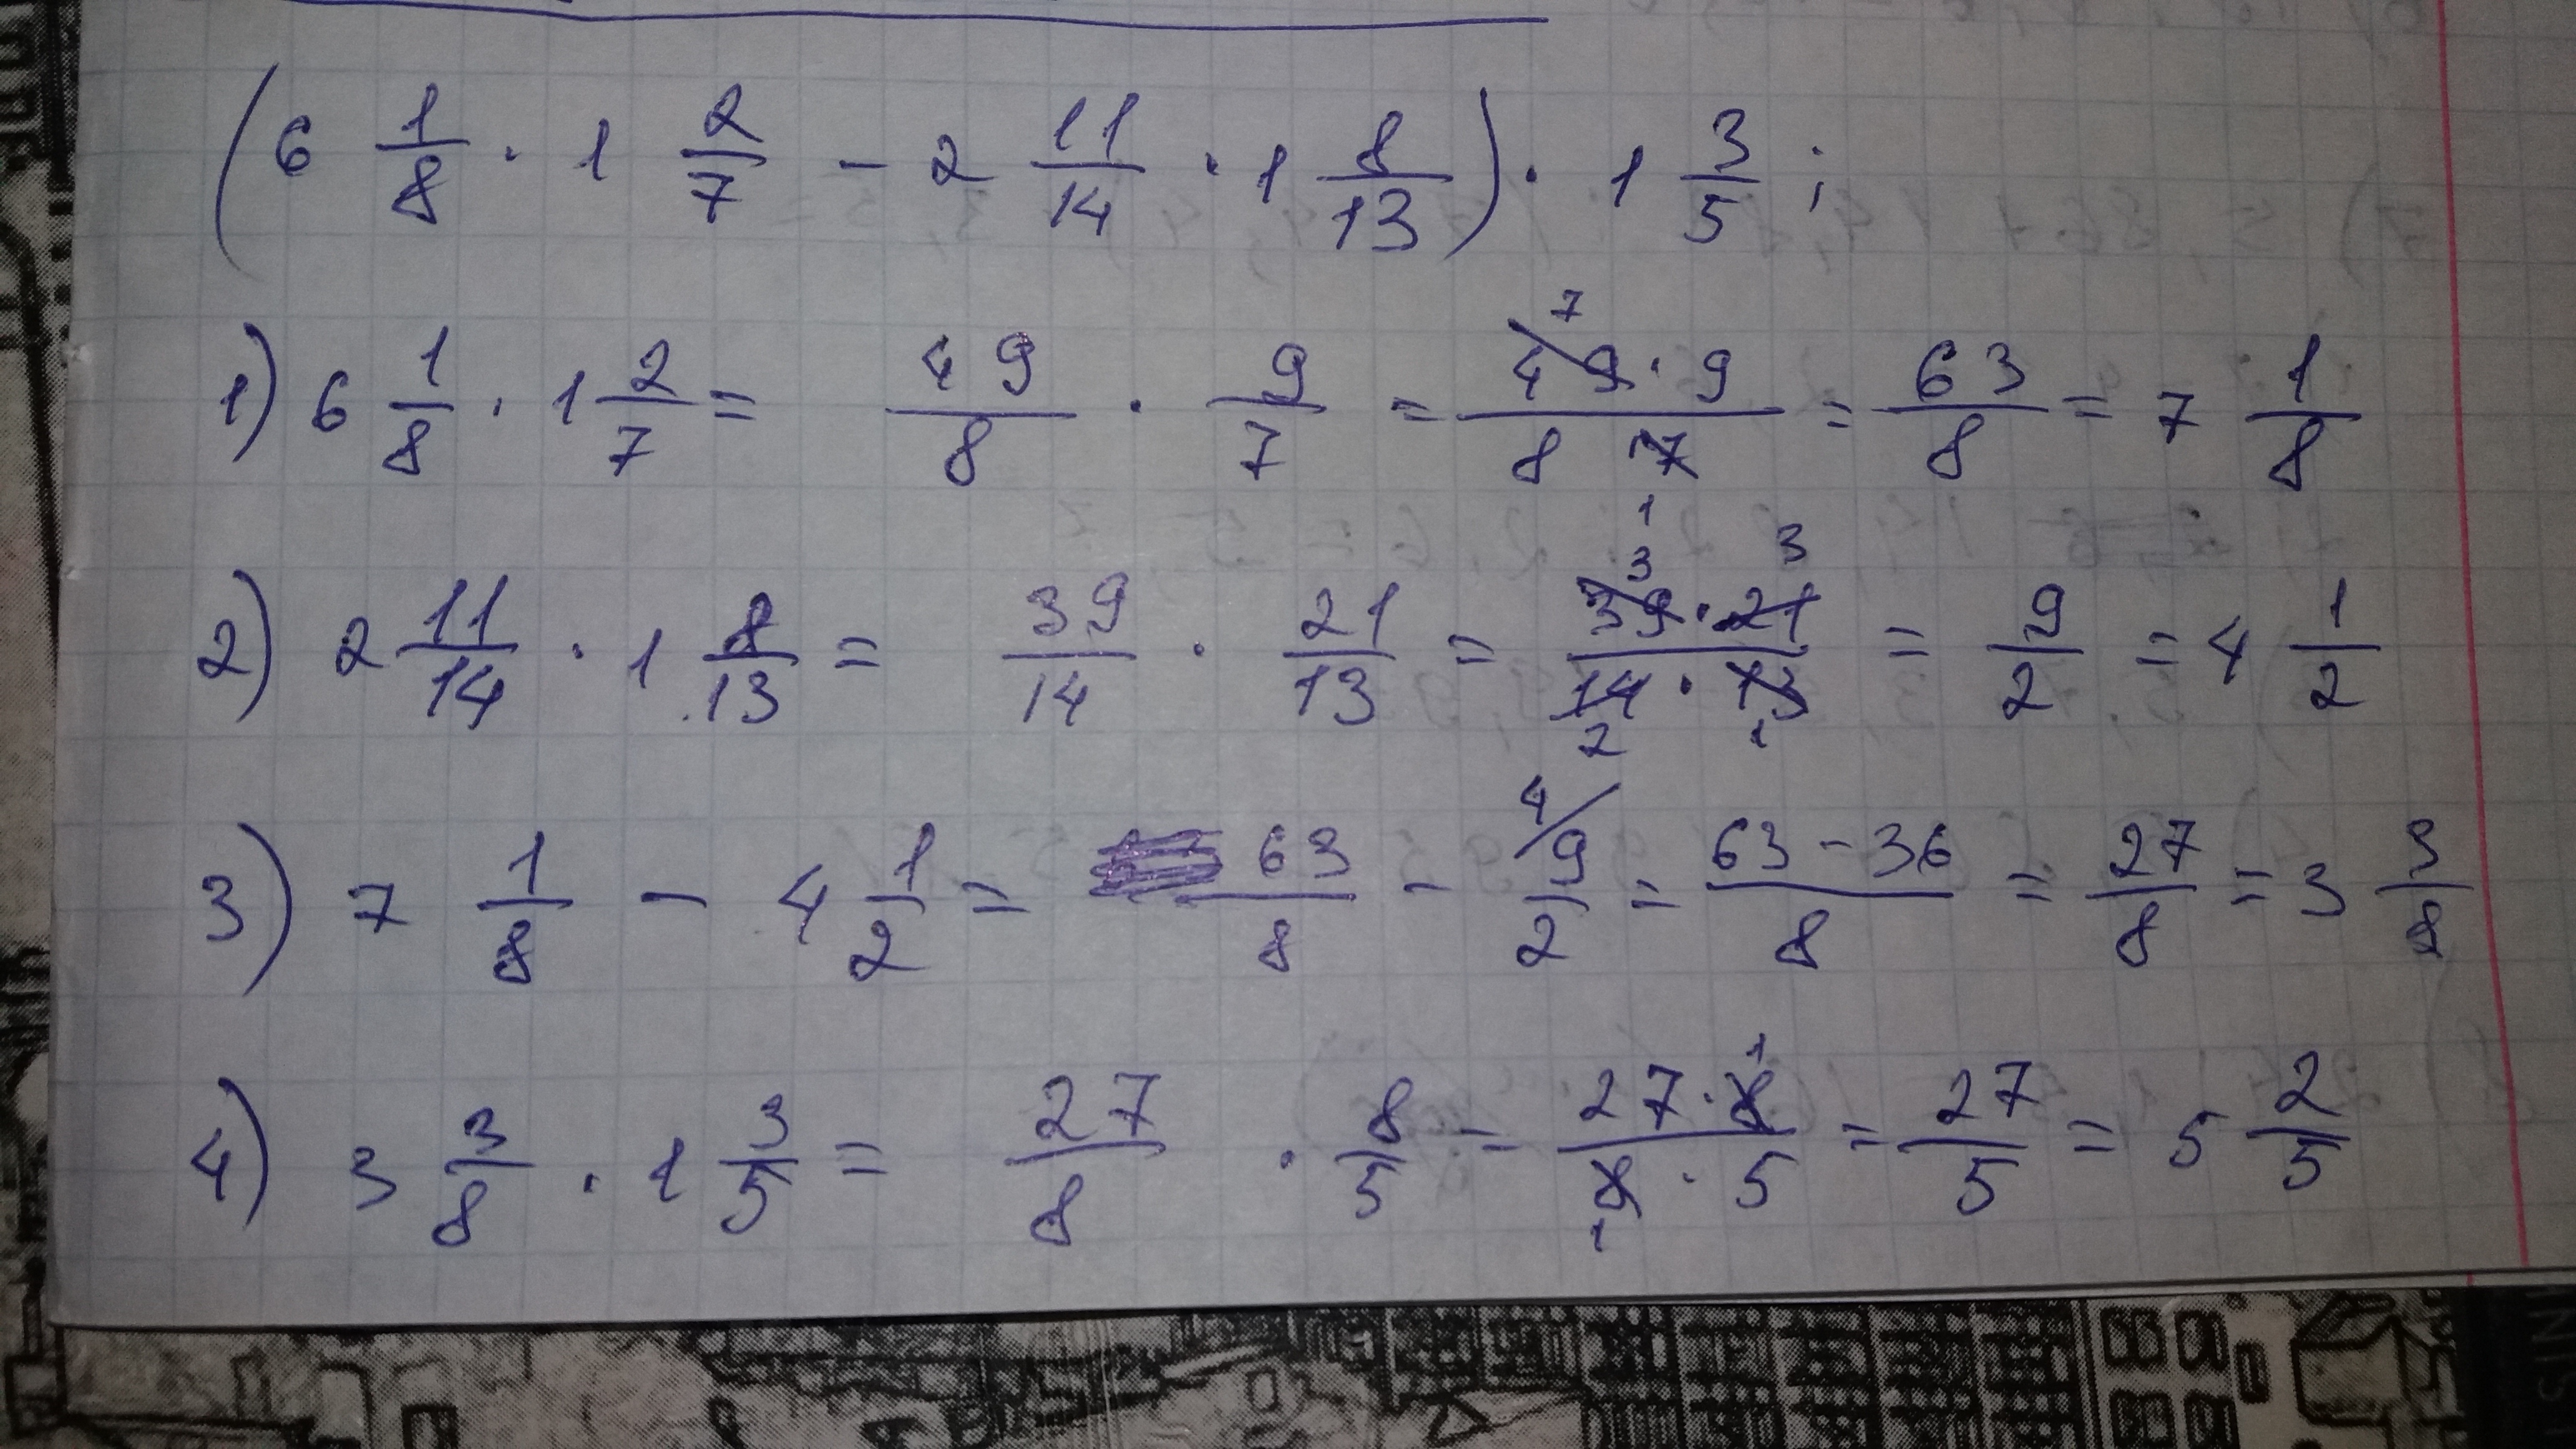 (6 1/8 · 1 2/7 - 2 11/14 · 1 8/13) · 1 3/5 ;
1) 6 1/8 · 1 2/7 = 49/8 · 9/7 = 49 7 · 9 / 8 7 1 = 63/8 = 7 1/8
2) 2 11/14 · 1 8/13 = 39/14 · 21/13 = 39 3 · 21 3 / 14 2 · 13 1 = 9/2 = 4 1/2
3) 7 1/8 - 4 1/2 = 63/8 - 4/ 9/2 = 63-36/8 = 27/8 = 3 3/8
4) 3 3/8 · 1 3/5 = 27/8 · 8/5 = 27·8 1 / 8 1 · 5 = 27/5 = 5 2/5